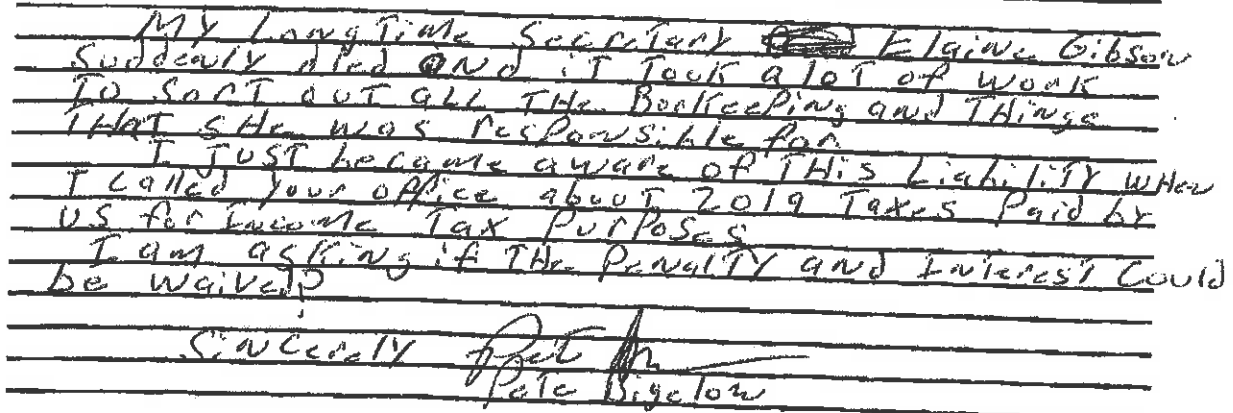 My Longtime Secretary Elaine Gibson
Suddenly died and it Took a lot of work
To Sort out all The Bookeeping and Things
That she was responsible for
I Just became aware of This Liability when
I called your office about 2019 Taxes Paid by
us for Income Tax Purposes
I am asking if The Penalty and Interest Could
be waived?
Sincerely
Pete Bigelow